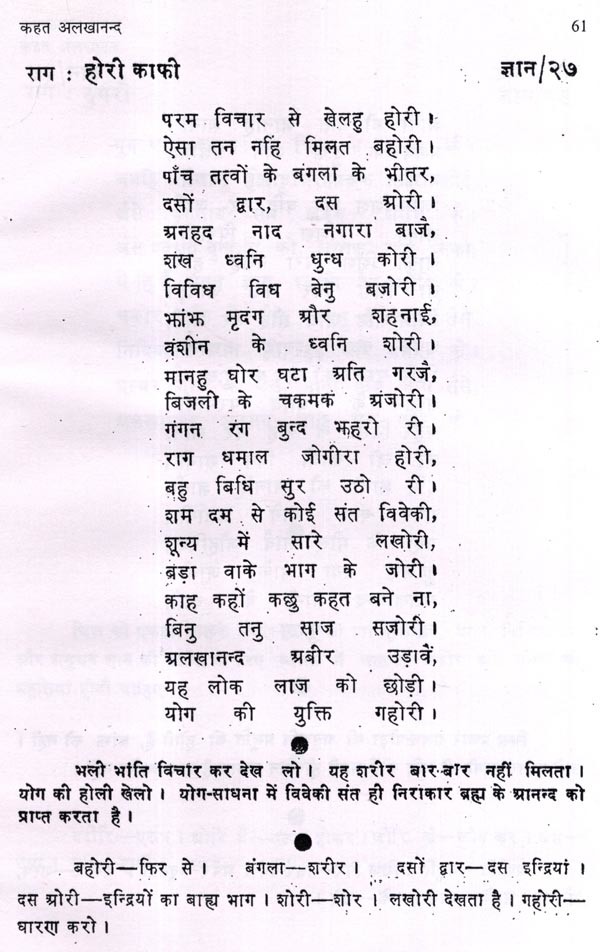 कहत अलखानन्द 61
राग : होरी काफी ज्ञान/२७
परम विचार से खेलहु होरी।
ऐसा तन नहिं मिलत बहोरी।
पाँच तत्वों के बंगला के भीतर,
दसों द्वार, दस ओरी।
अनहद नाद नगारा बाजै,
शंख ध्वनि धुन्ध कोरी।
विविध विध बेनु बजोरी।
झांझ मृदंग और शहनाई,
वंशीन के ध्वनि शोरी।
मानहु घोर घटा अति गरजै,
बिजली के चकमक अंजोरी।
गगन रंग बुन्द झहरो री।
राग धमाल जोगीरा होरी,
बहु बिधि सुर उठो री।
शम दम से कोई संत विवेकी,
शून्य में सारे लखोरी,
बड़ा वाके भाग के जोरी।
काह कहों कछु कहत बने ना,
बिनु तनु साज सजोरी।
अलखानन्द अबीर उड़ावें,
यह लोक लाज को छोड़ी।
योग की युक्ति गहोरी।
भली भांति विचार कर देख लो। यह शरीर बार-बार नहीं मिलता।
योग की होली खेलो। योग-साधना में विवेकी संत ही निराकार ब्रह्म के आनन्द को
प्राप्त करता है।
बहोरी—फिर से। बंगला—शरीर। दसों द्वार—दस इन्द्रियां।
दस ओरी—इन्द्रियों का बाह्य भाग। शोरी—शोर। लखोरी देखता है। गहोरी—
धारण करो।